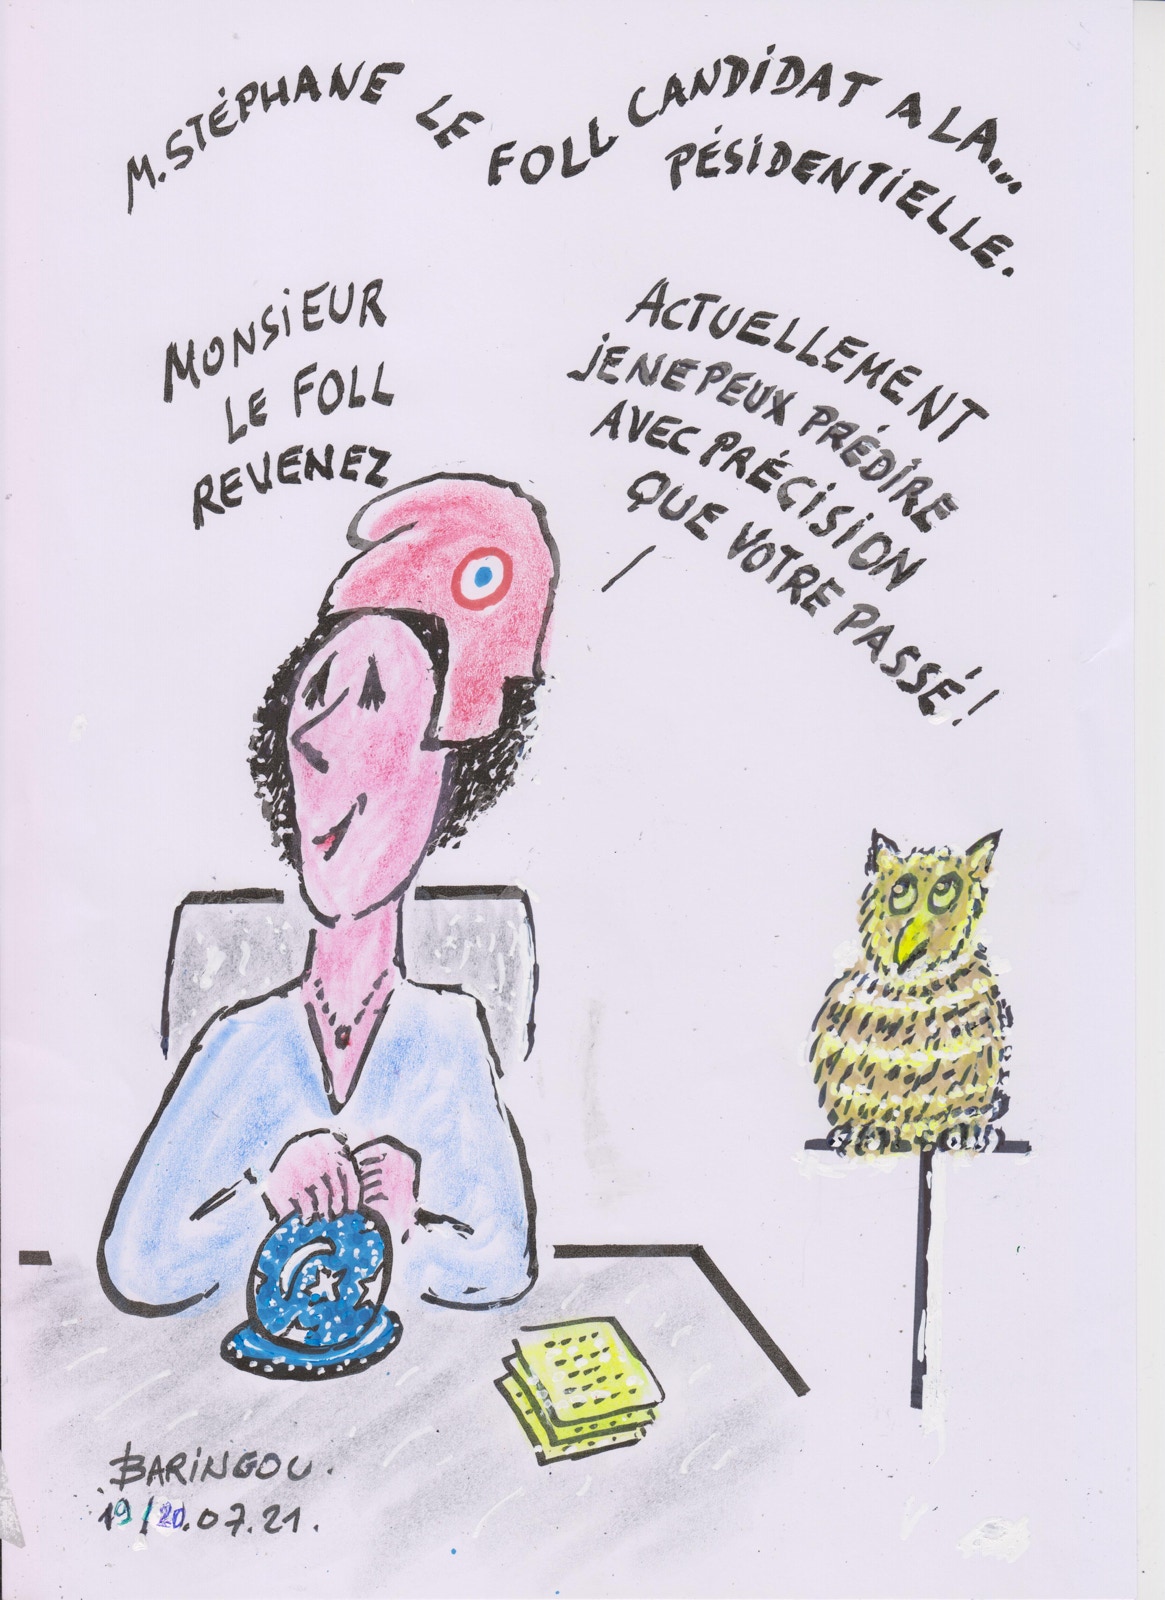 M. STÉPHANE LE FOLL CANDIDAT A LA...
PÉSIDENTIELLE.
MONSIEUR
LE FOLL
REVENEZ
ACTUELLEMENT
JE NE PEUX PRÉDIRE
AVEC PRÉCISION
QUE VOTRE PASSÉ!
BARINGOU.
19/20.07.21.